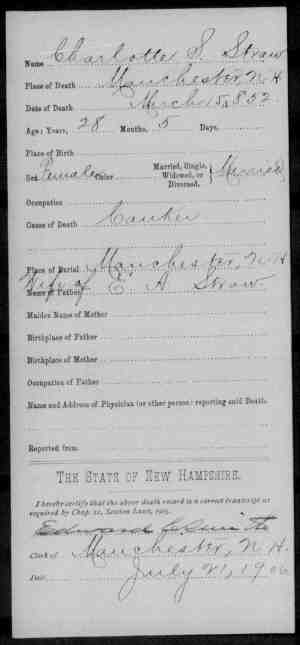 Name Charlotte S. Straw
Place of Death Manchester, N.H.
Date of Death March 15, 1852
Age: Years, 28 Months, 5 Days,
Place of Birth
Sex Female Color Married, Single, Widowed, or Divorced, Married
Occupation
Cause of Death Canker
Place of Burial Manchester, N.H.
Wife of
Name of Father E. A. Straw
Maiden Name of Mother
Birthplace of Father
Birthplace of Mother
Occupation of Father
Name and Address of Physician (or other person) reporting said Death.
Reported from
THE STATE OF NEW HAMPSHIRE.
I hereby certify that the above death record is a correct transcript as
required by Chap. 21, Session Laws, 1905.
Edward C. Smith
Clerk of Manchester, N.H.
Date July 21, 1906